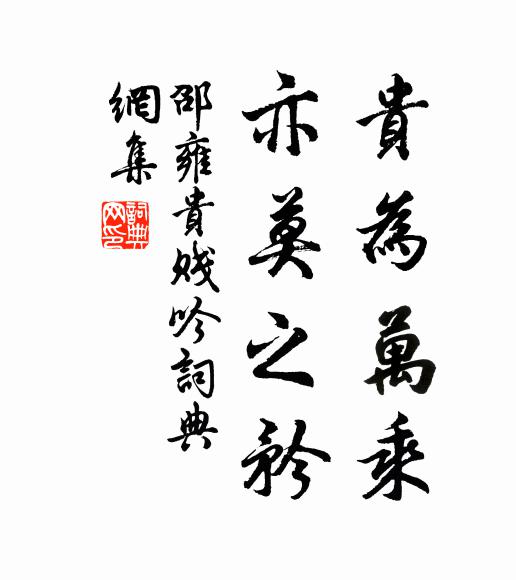 貴為萬乘
亦莫之矜
邵雍貴賤吟詞典
網集
詞典
网印